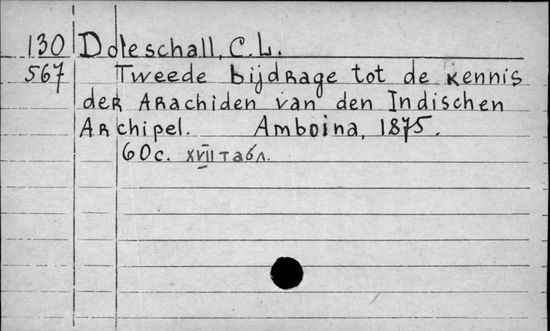 130 Doleschall, C.L.
567 Tweede bijdrage tot de kennis
der Arachiden van den Indischen
Archipel. Amboina, 1875.
60с. XVII табл.